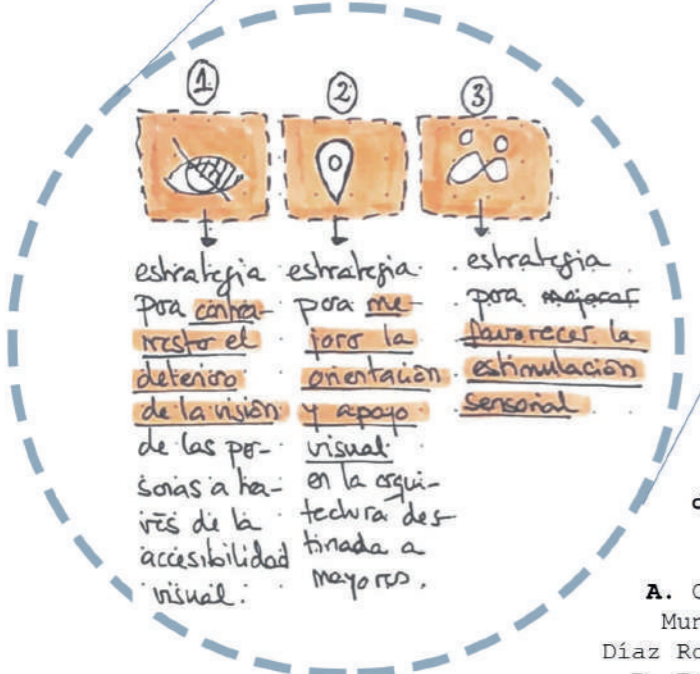 1
estrategia
para contra-
rrestar el
deterioro
de la visión
de las per-
sonas a tra-
vés de la
accesibilidad
visual.
2
estrategia
para me-
jorar la
orientación
y apoyo
visual
en la arqui-
tectura des-
tinada a
mayores.
3
estrategia
para mejorar
favorecer la
estimulación
sensorial
A. C
Mun
Díaz Ro